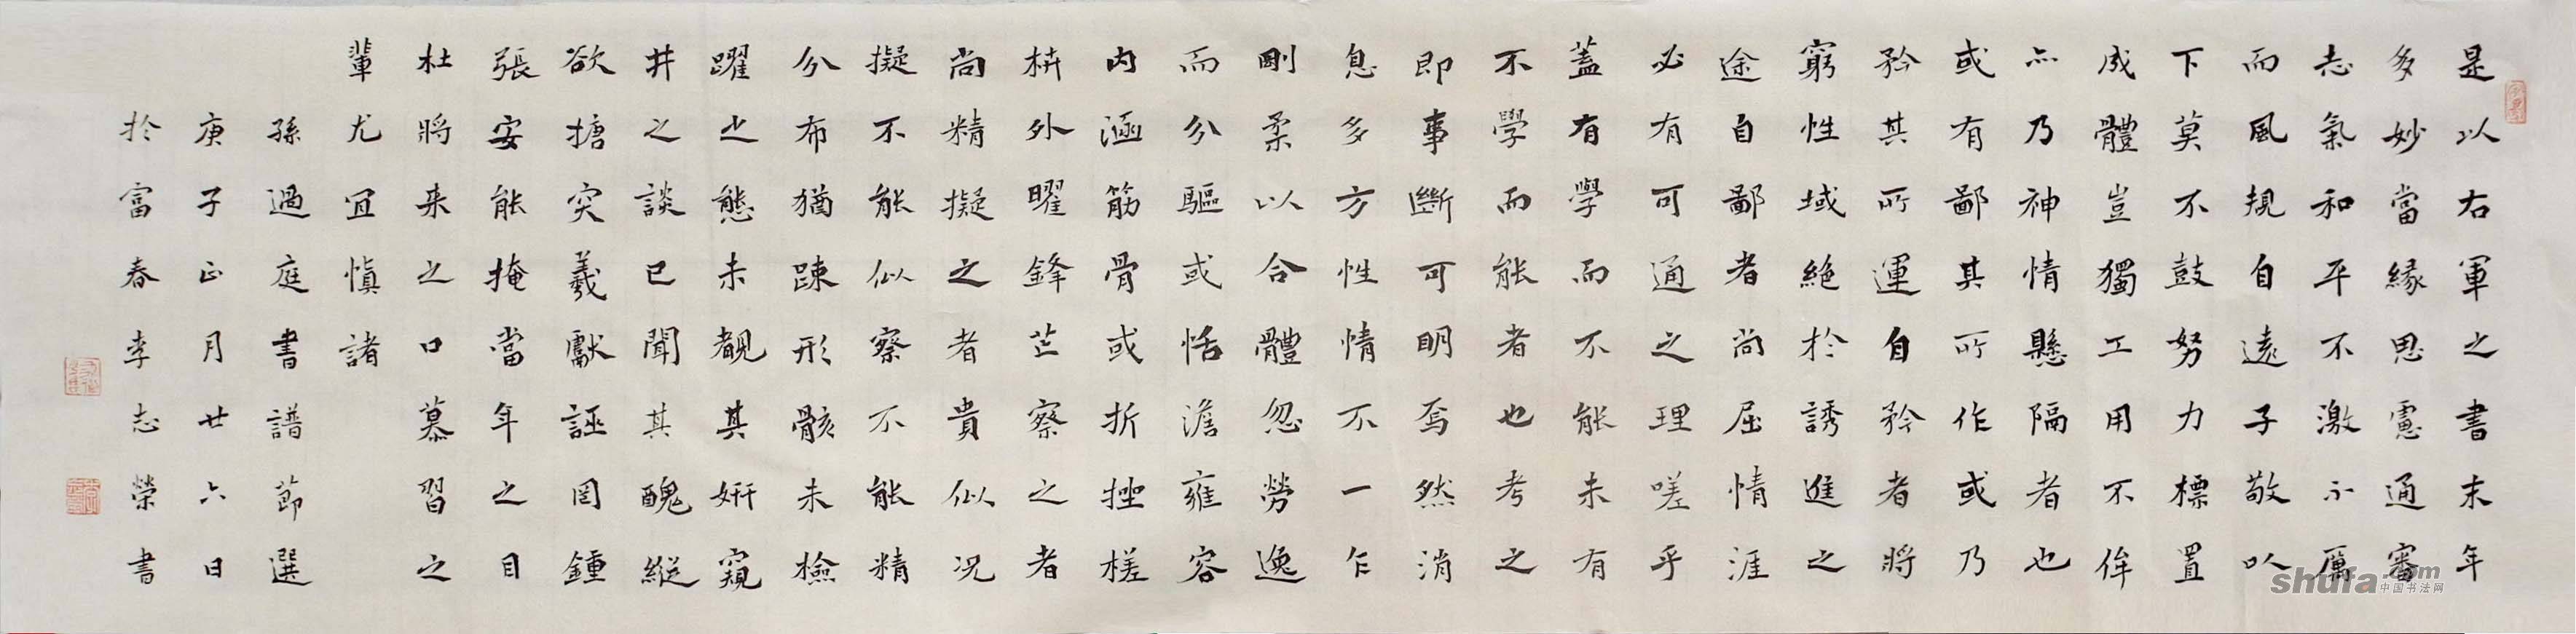 是以右軍之書末年
多妙當緣思慮通審
志氣和平不激不厲
而風規自遠子敬以
下莫不鼓努力標置
成體豈獨工用不侔
亦乃神情懸隔者也
或有鄙其所作或乃
矜其所運自矜者將
窮性域絕於誘進之
途自鄙者尚屈情涯
必有可通之理嗟乎
蓋有學而不能未有
不學而能者也考之
即事斷可明焉然消
息多方性情不一乍
剛柔以合體忽勞逸
而分驅或恬澹雍容
內涵筋骨或折挫槎
枿外曜鋒芒察之者
尚精擬之者貴似況
擬不能似察不能精
分布猶疎形骸未檢
躍之態未覩其妍窺
井之談已聞其醜縱
欲搪突羲獻誣罔鍾
張安能掩當年之目
杜將来之口慕習之
輩尤宜慎諸
孫過庭書譜節選
庚子正月廿六日
於富春李志榮書
shufa.com
中国书法网